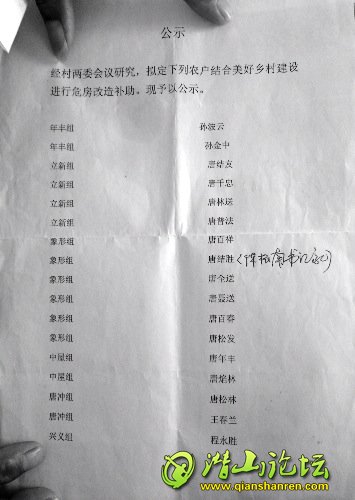 公示
经村两委会议研究，拟定下列农户结合美好乡村建设
进行危房改造补助。现予以公示。
年丰组 孙波云
年丰组 孙金中
立新组 唐结友
立新组 唐千思
立新组 唐林送
立新组 唐普法
象形组 唐百祥
象形组 唐结胜
象形组 唐全送
象形组 唐磊送
象形组 唐百春
象形组 唐松发
中屋组 唐年丰
中屋组 唐焰林
唐冲组 唐松林
唐冲组 王春兰
兴义组 程永胜
潜山论坛
www.qianshanren.com